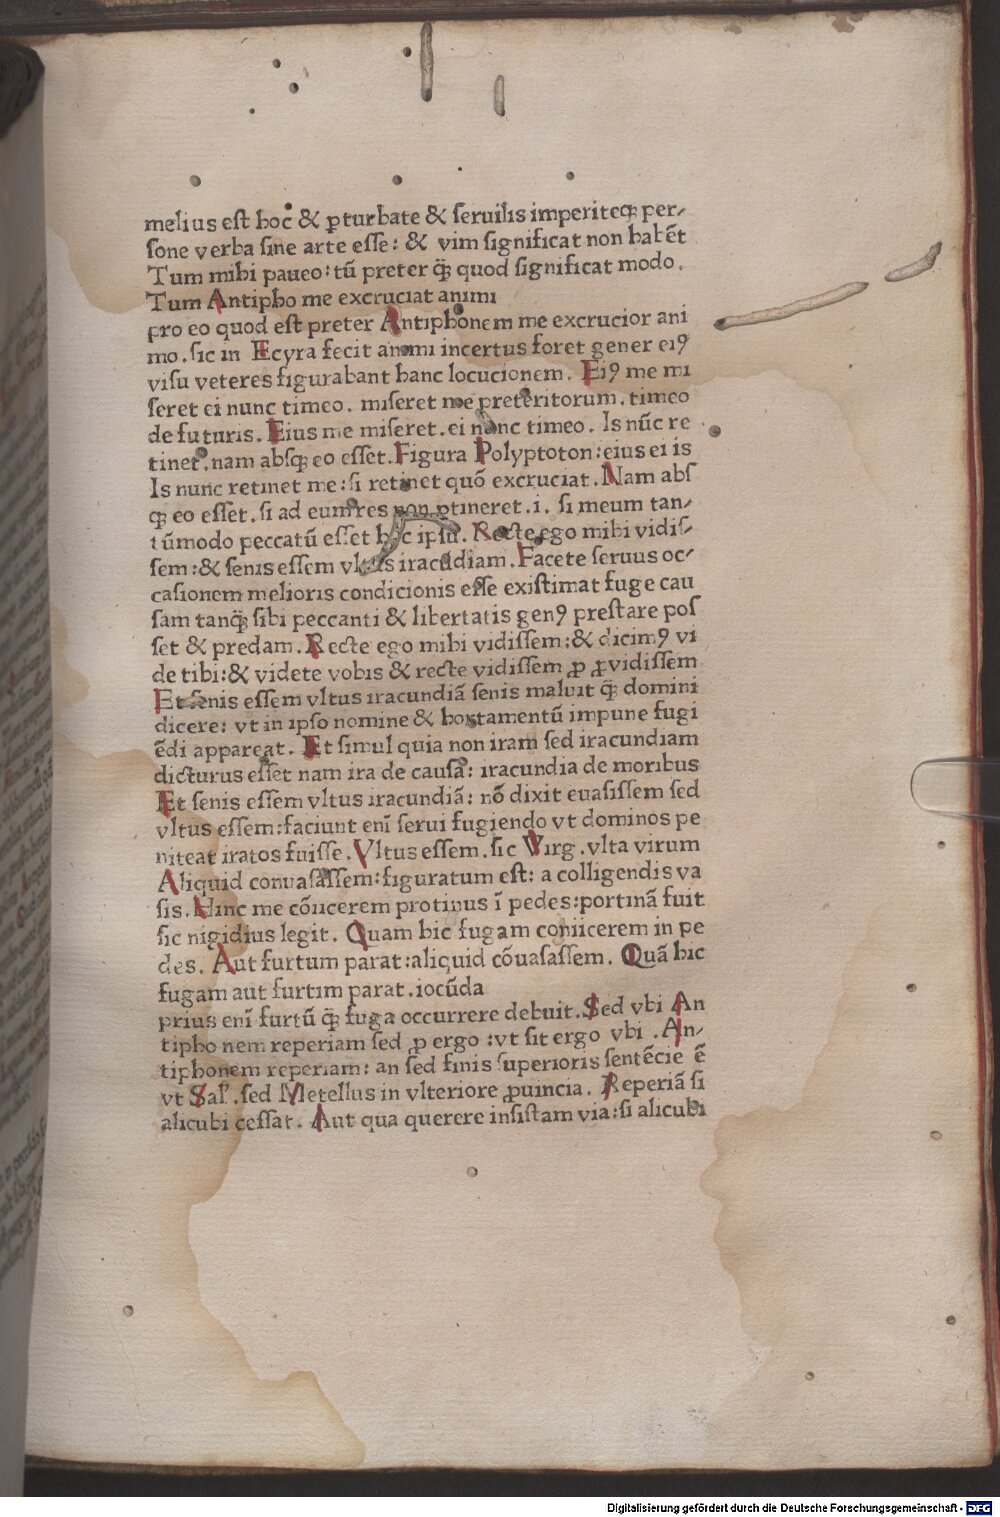 melius est hoc & ꝑturbate & seruilis imperiteqꝫ per-
sone verba sine arte esse: & vim significat non habēt
Tum mihi paueo: tū preter qꝫ̄ quod significat modo.
Tum Antipho me excruciat animi
pro eo quod est preter Antiphonem me excrucior ani
mo. sic in Ecyra fecit animi incertus foret gener eiꝰ
visu veteres figurabant hanc locucionem. Eiꝰ me mi
seret ei nunc timeo. miseret me preteritorum. timeo
de futuris. Eius me miseret. ei nunc timeo. Is nūc re
tinet. nam absqꝫ eo esset. Figura Polyptoton: eius ei is
Is nunc retinet me: si retinet quō excruciat. Nam abs
qꝫ eo esset. si ad eum res non ꝑtineret .i. si meum tan-
tūmodo peccatū esset hoc ipsū. Recte ego mihi vidis-
sem: & senis essem vltus iracudiam. Facete seruus oc-
casionem melioris condicionis esse existimat fuge cau
sam tanqꝫ̄ sibi peccanti & libertatis genꝰ prestare pos
set & predam. Recte ego mihi vidissem: & dicimꝰ vi
de tibi: & videte vobis & recte vidissem ꝓ ꝓvidissem
Et senis essem vltus iracundiā senis maluit qꝫ̄ domini
dicere: vt in ipso nomine & hortamentū impune fugi
ēdi appareat. Et simul quia non iram sed iracundiam
dicturus esset nam ira de causa: iracundia de moribus
Et senis essem vltus iracundiā: nō dixit euasissem sed
vltus essem: faciunt enī serui fugiendo vt dominos pe
niteat iratos fuisse. Vltus essem. sic Virg. vlta virum
Aliquid conuasassem: figuratum est: a colligendis va
sis. Hinc me cōiicerem protinus ī pedes: portinā fuit
sic nigidius legit. Quam hic fugam coniicerem in pe
des. Aut furtum parat: aliquid cōuasassem. Quā hic
fugam aut furtim parat. iocūda
prius enī furtū qꝫ̄ fuga occurrere debuit. Sed vbi An
tipho nem reperiam sed ꝓ ergo: vt sit ergo vbi . An-
tiphonem reperiam: an sed finis superioris sentēcie ē
vt Sal'. sed Metellus in vlteriore ꝓuincia. Reperiā si
alicubi cessat. Aut qua querere insistam via: si alicubi
Digitalisierung gefördert durch die Deutsche Forschungsgemeinschaft - DFG